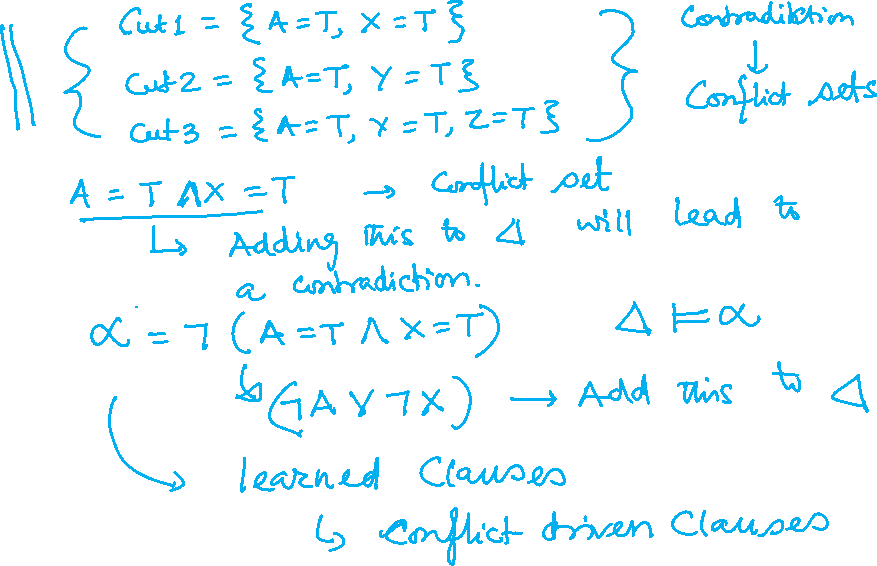 Cut1 = {A=T, X=T}
Cut2 = {A=T, Y=T}
Cut3 = {A=T, Y=T, Z=T}
Contradiction
↓
Conflict sets
A = T ∧ X = T → Conflict set
↳ Adding this to Δ will lead to
a contradiction.
α = ¬ (A=T ∧ X=T) Δ ⊨ α
↳ (¬A ∨ ¬X) → Add this to Δ
learned Clauses
↳ Conflict driven Clauses